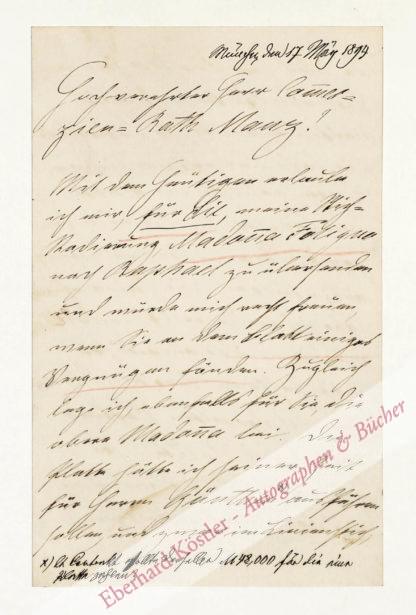 München, den 17 März 1894
Hochverehrter Herr Commer-
zien-Rath Manz!
Mit dem Heutigen erlaube
ich mir, für Sie, meine
Radierung Madonna Foligno
nach Raphael zu übersenden
und würde mich recht freuen,
wenn Sie an dem Blatt einiges
Vergnügen fänden. Zugleich
lege ich, ebenfalls für Sie die
obere Madonna bei. Die
Platte hätte ich seiner Zeit
für Herrn ausführen
sollen und zwar im
M 48,000 für die
Platte
Eberhard Köstler - Autographen & Bücher